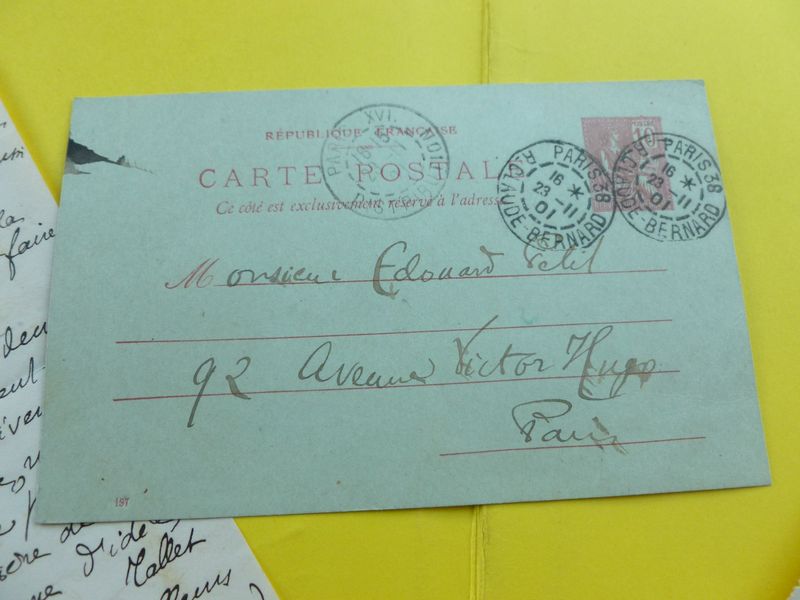 RÉPUBLIQUE FRANÇAISE
CARTE POSTALE
Ce côté est exclusivement réservé à l'adresse
XVI.
DISTRIBUTION
PARIS 38
16 *
23 -11
01
R. CLAUDE-BERNARD
PARIS 38
16 *
23 11
01
R. CLAUDE-BERNARD
10
Monsieur Edouard Petit
92 Avenue Victor Hugo
Paris
197
faire
d'idées
Mallet